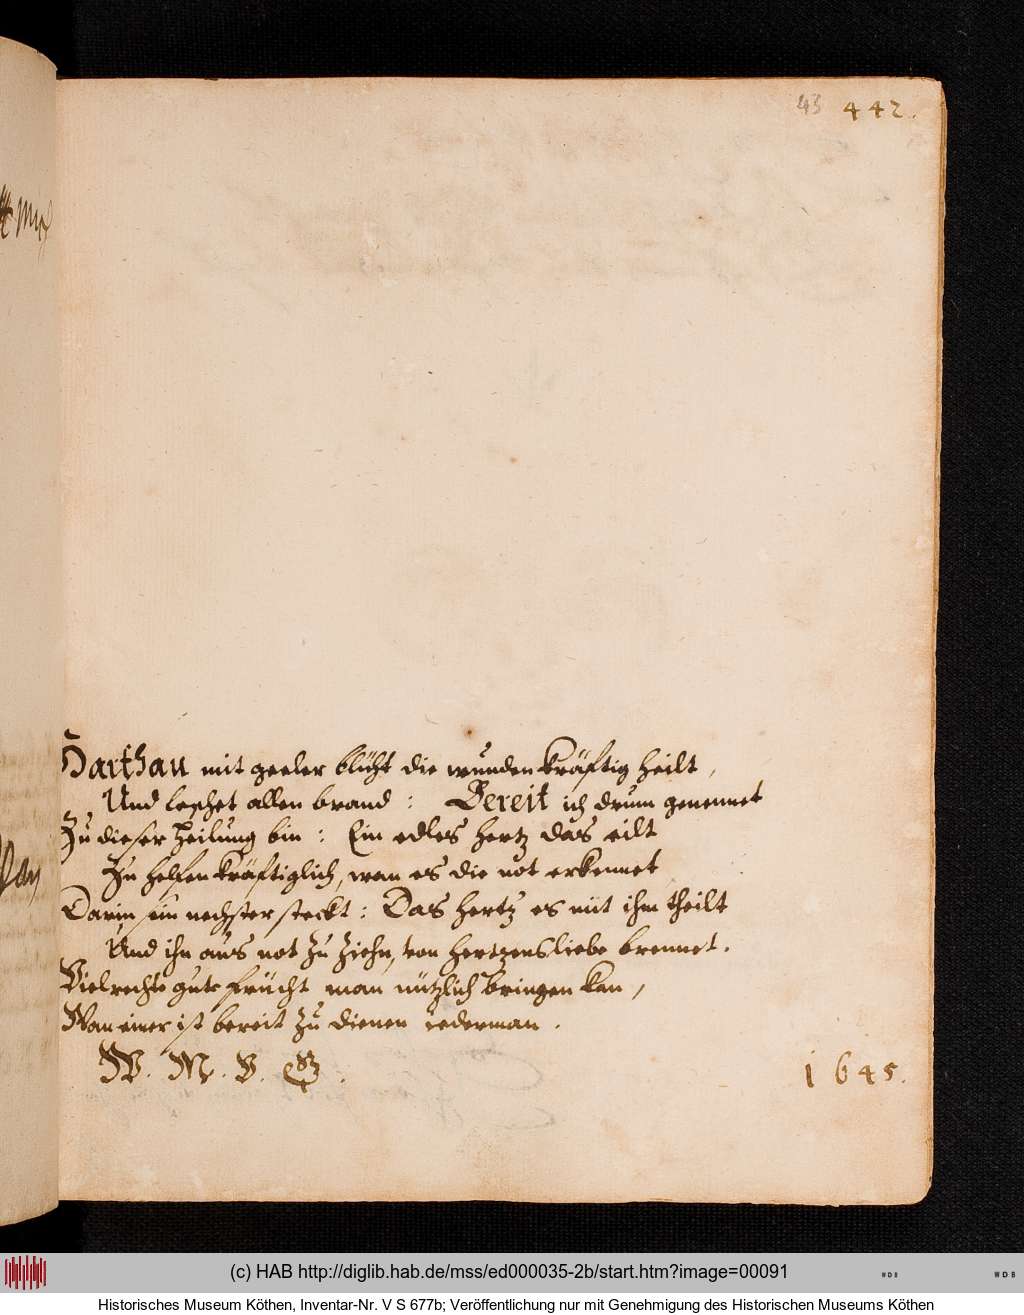 43 442.
Harthau mit geeler blüht die wunden kräftig heilt,
Und leschet allen brand: Bereit ich drum genennet
Zu dieser heilung bin: Ein edles hertz das eilt
Zu helfen kräftiglich, wan es die not erkennet
Darin sein nechster steckt: Das hertz es mit ihm theilt
Und ihn aus not zu ziehn, von hertzensliebe brennet.
Viel rechte gute frücht man nützlich bringen kan,
Wan einer ist bereit zu dienen iederman.
W. M. V.
1645.
(c) HAB http://diglib.hab.de/mss/ed000035-2b/start.htm?image=00091
WDB
WDB
Historisches Museum Köthen, Inventar-Nr. V S 677b; Veröffentlichung nur mit Genehmigung des Historischen Museums Köthen